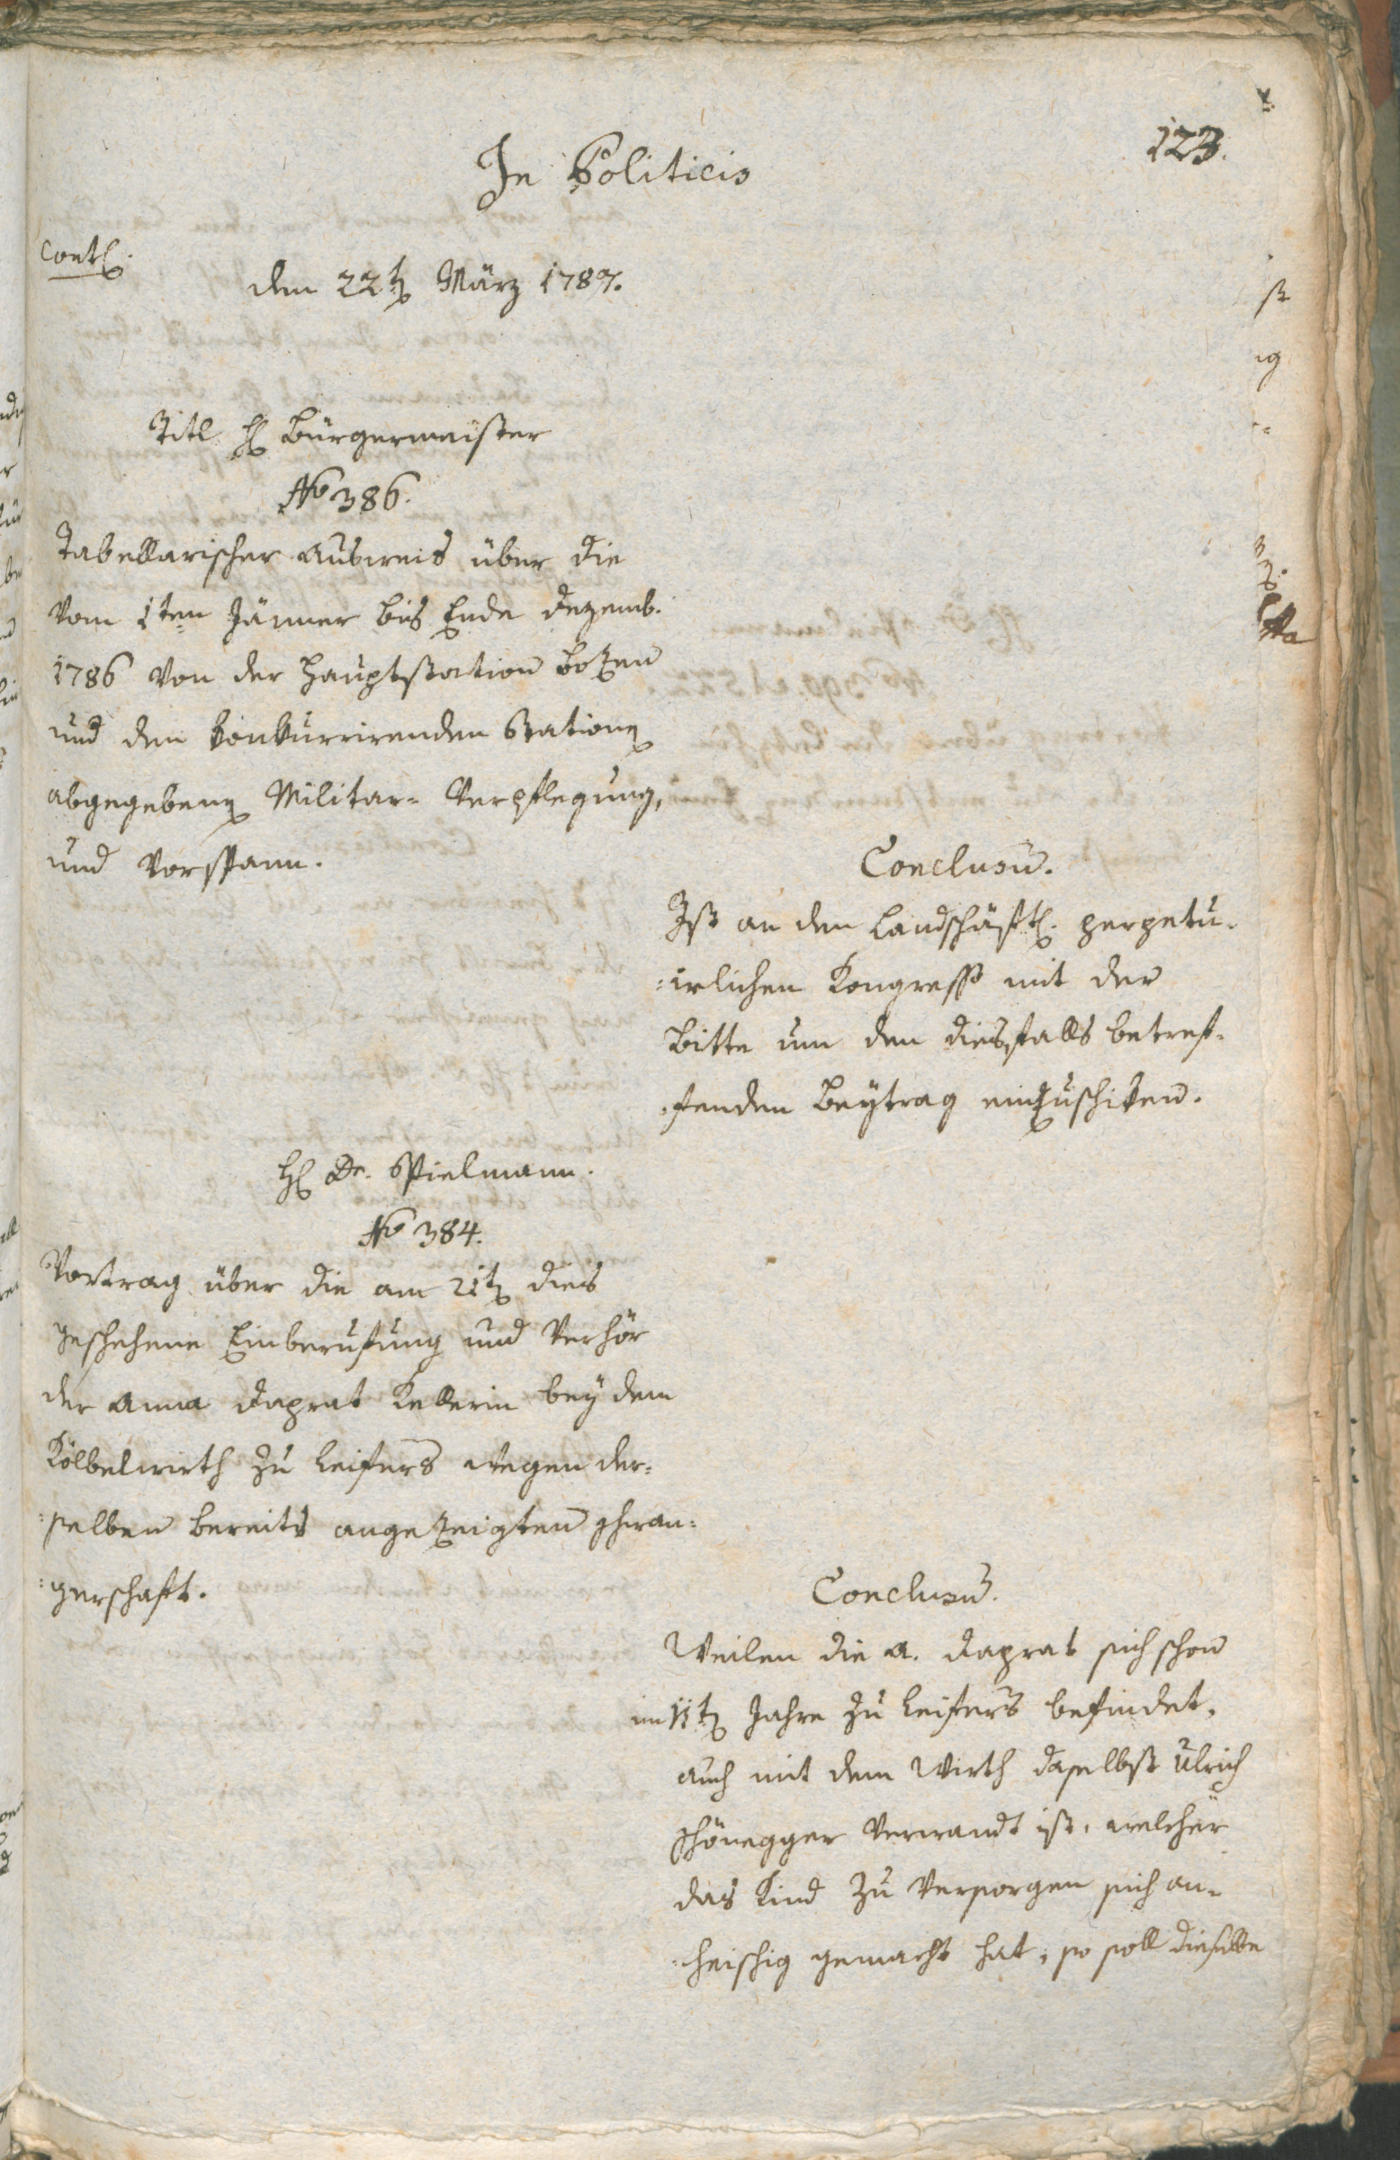 123.
In Politicis
den 22t März 1787.
Titl H Bürgermeister
No 386.
Tabellarischer Ausweis über die
vom 1ten Jänner bis Ende Dezemb.
1786 von der Hauptstation Bozen
und den konkurrirenden Station
abgegeben Militar= Verpflegung,
und Vorspann.
Conclusū.
Ist an den Landschäftl. perpetu=
=irlichen Kongress mit der
Bitte um den diesfalls betref=
=fenden Beytrag einzuschiken.
H Dr. Spielmann.
No 384.
Vortrag über die am 21t dies
geschehene Einberufung und Verhör
der Anna Daprat Kellerin bey dem
Kölbelwirth zu Leifers wegen der=
=selben bereits angezeigten schwan=
=gerschaft.
Conclusū.
Weilen die A. Daprat sich schon
im 11t Jahre zu Leifers befindet,
auch mit dem Wirth daselbst Ulrich
schönegger verwandt ist, welcher
das Kind zu versorgen sich an=
=heischig gemacht hat, so soll dieselbe